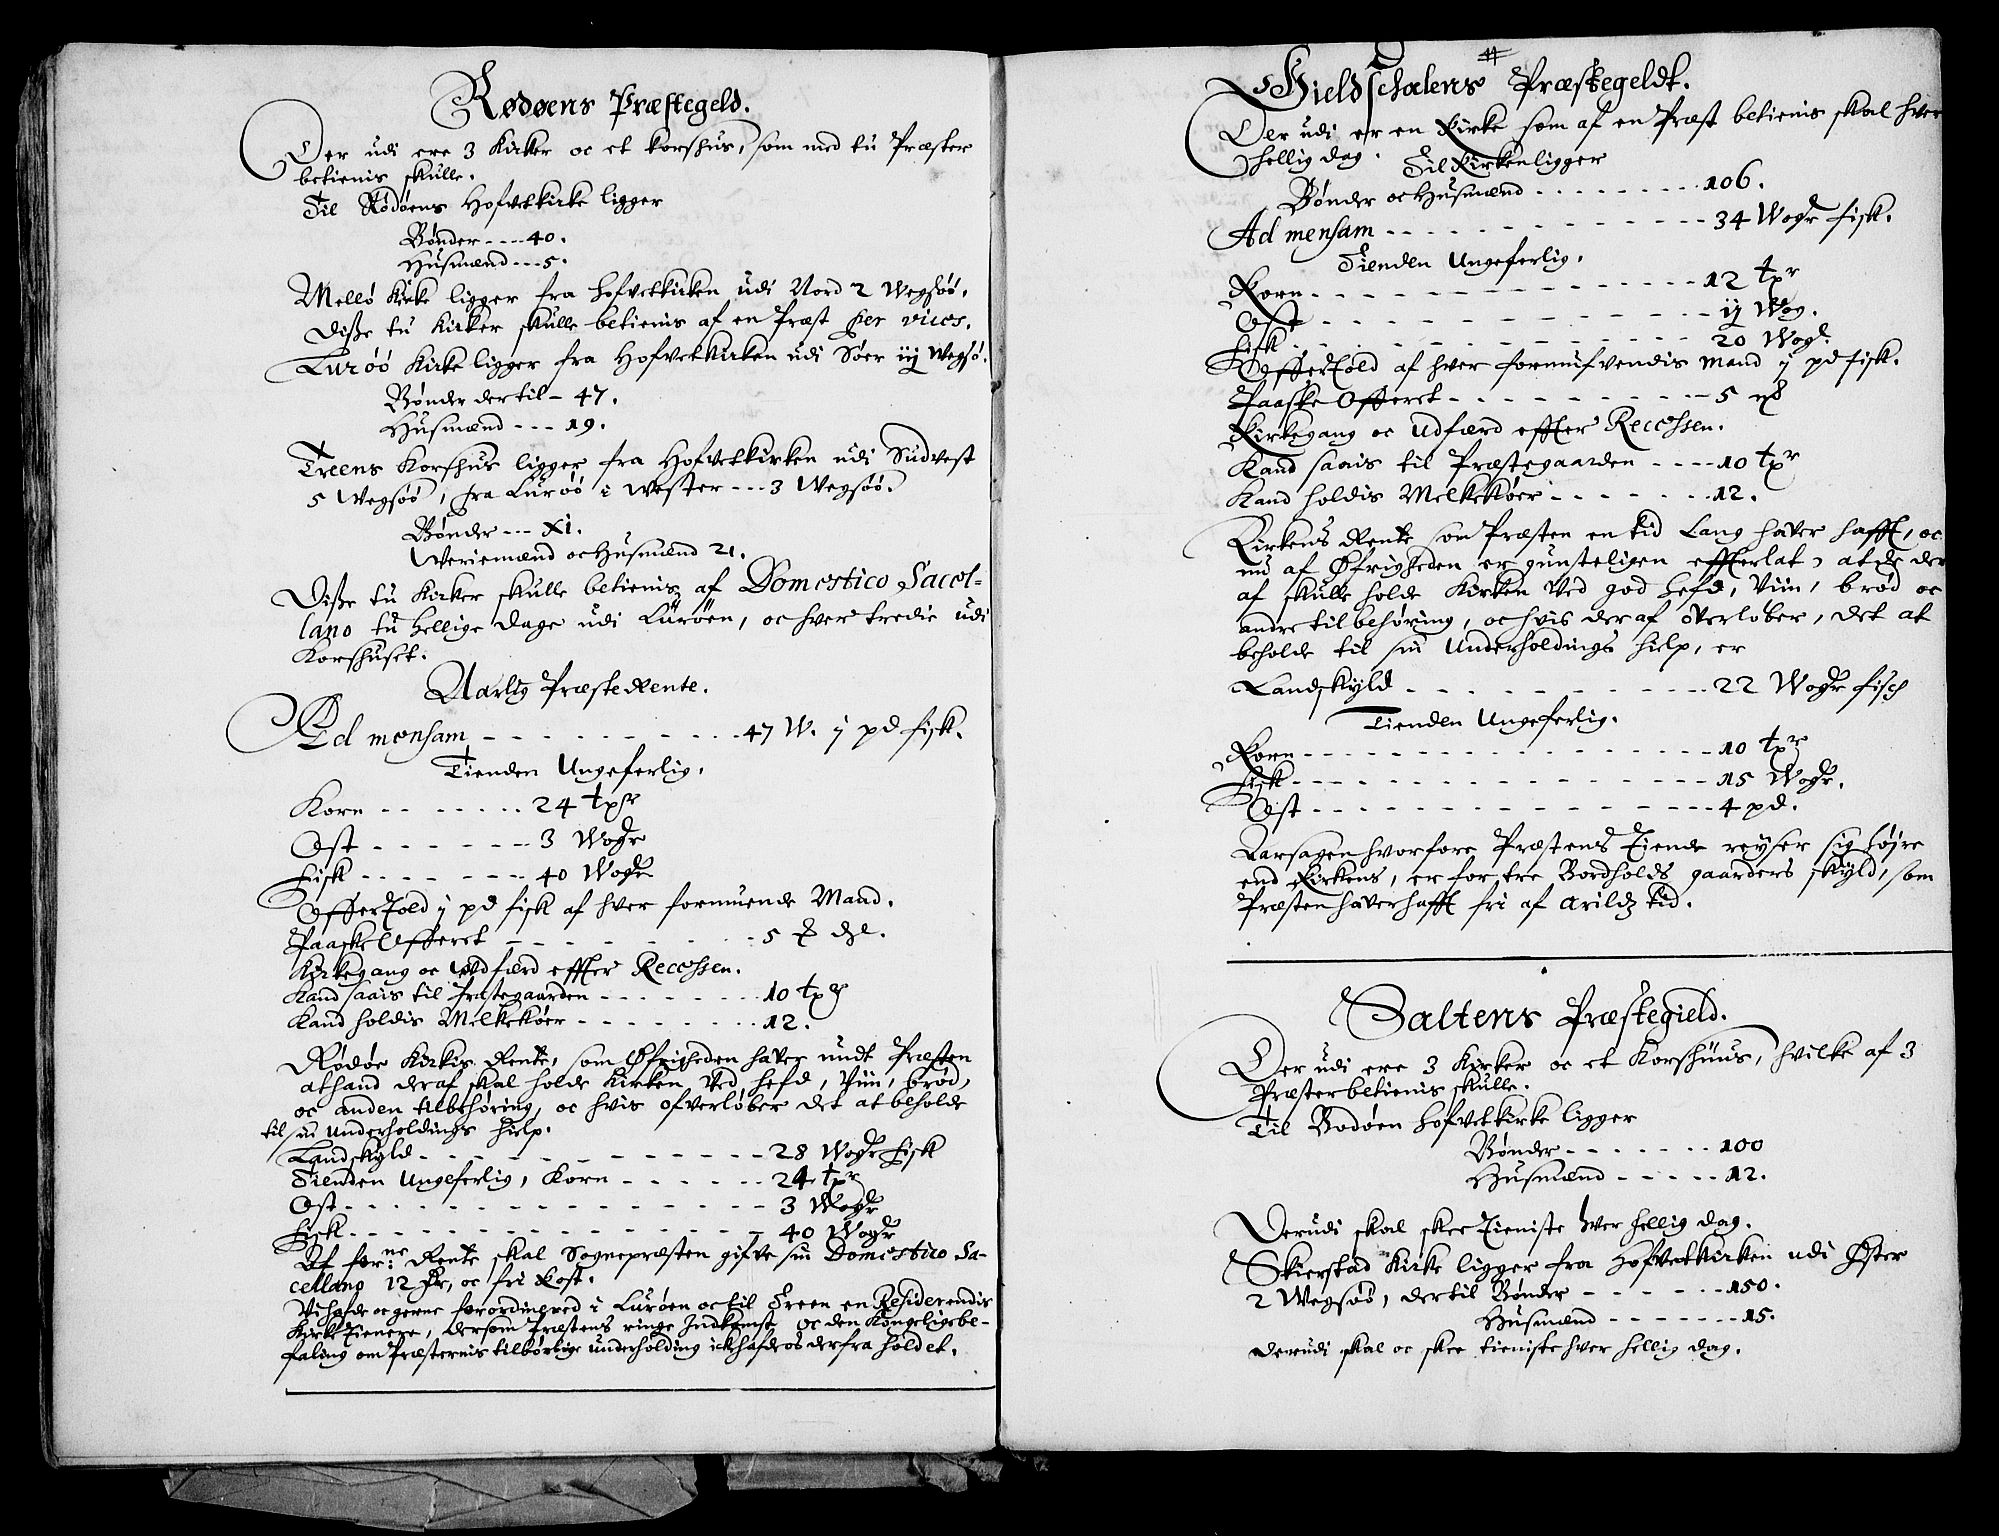 Rødøens Præstegeld.
Der udi ere 3 Kirker oc et korshus, som med tu Præster
betienis skulle.
Til Rødøens Hofvetkirke ligger
Bønder ---- 40.
Husmænd --- 5.
Mellø Kirke ligger fra hofvetkirken udi Nord 2 Wegsøø.
Disse tu Kirker skulle betienis af en Præst per vices.
Lurøø Kirke ligger fra Hofvetkirken udi Søer iij Wegsø.
Bønder dertil - 47.
Husmænd --- 19.
Treens Korshus ligger fra Hofvetkirken udi Sudvest
5 Wegsøø, fra Lurøø i Wester --- 3 Wegsøø.
Bønder --- XI.
Weriemænd oc Husmænd 21.
Disse tu Kirker skulle betienis af Domestico Sacel-
lano tu hellige dage udi Lurøen, oc hver tredie udi
Korshuset.
Aarlig Præste Rente.
Ad mensam - - - - - - - - - 47 W. j pd fisk.
Tienden Ungeferlig.
Korn - - - - - - - 24 tpr
Ost - - - - - - - 3 Wogr
Fisk - - - - - - - 40 Wogr
Offertold j pd fisk af hver formuende Mand.
Paaske Offeret - - - - - - - 5
Kirkegang oc Udfærd effter Recessen.
Kand saais til Præstegaarden - - - - - - - 10 tpr
Kand holdis Melkekøer - - - - - - - - 12.
Rødøe Kirkis Rente, som Øfrigheden haver undt Præsten
at hand deraf skal holde Kirken ved hefd, Viin, brød,
oc anden tilbehøring, oc hvis ofverløber det at beholde
til sin underholdings hielp.
Landskyld - - - - - - - - - - - - - - 28 Wogr fisk
Tienden Ungeferlig, Korn - - - - - - 24 tpr
Ost - - - - - - - - - - - - - - - - 3 Wogr
Fisk - - - - - - - - - - - - - - - - 40 Wogr
Af forne Rente skal Sognepræsten gifve sin Domestico Sa-
cellano 12 oc fri Kost.
Vi hafde oc gerne forordinered i Lurøen oc til Treen en Residerendis
Kirke Tienere, dersom Præstens ringe Indkomst oc den Kongelige be-
faling om Præsternis tilbørlige underholding ick hafde os derfra holdet.
Gieldschalens Præstegeldt.
Der udi er en Kirke som af en Præst betienis skal hver
hellig dag. Til Kirken ligger
Bønder oc Husmænd - - - - - - - - - 106.
Ad mensam - - - - - - - - - - - - - 34 Wogr fisk.
Tienden Ungeferlig.
Korn - - - - - - - - - - - - - - - - 12 tpr
Ost - - - - - - - - - - - - - - - - ij Wog.
Fisk - - - - - - - - - - - - - - - - 20 Wogr
Offertold af hver formufvendis Mand j pd fisk.
Paaske Offeret - - - - - - - - - - - 5
Kirkegang oc Udfærd effter Recessen.
Kand saais til Præstegaarden - - - - 10 tpr
Kand holdis Melkekøer - - - - - - - 12.
Kirkens Rente som Præsten en tid lang haver hafft, oc
nu af Øfrigheden er gunsteligen effterlat, at de der
af skulle holde Kirken ved god hefd, Viin, brød oc
andre tilbehøring, oc hvis der af øverløber, det at
beholde til sin Underholdings hielp, er
Landskyld - - - - - - - - - - - - - 22 Wogr fisch
Tienden Ungeferlig.
Korn - - - - - - - - - - - - - - - - 10 tpr
Fisk - - - - - - - - - - - - - - - - 15 Wogr.
Ost - - - - - - - - - - - - - - - - 4 pd.
Aarsagen hvorfore Præstens Tiende reyser sig højre
end Kirkens, er for tre Bordholds gaarders skyld, som
Præsten haver hafft fri af Arildz tid.
Saltens Præstegield.
Der udi ere 3 Kirker oc et Korshuus, hvilke af 3
Præster betienis skulle.
Til Bodøen hofvetkirke ligger
Bønder - - - - - - - 100
Husmænd - - - - - 12.
Derudi skal skee Tieniste hver hellig dag.
Skierstad Kirke ligger fra Hofvetkirken udi Øster
2 Wegsøø, dertil Bønder - - - - - - 150.
Husmænd - - - - - - - 15.
Derudi skal oc skee tieniste hver hellig dag.